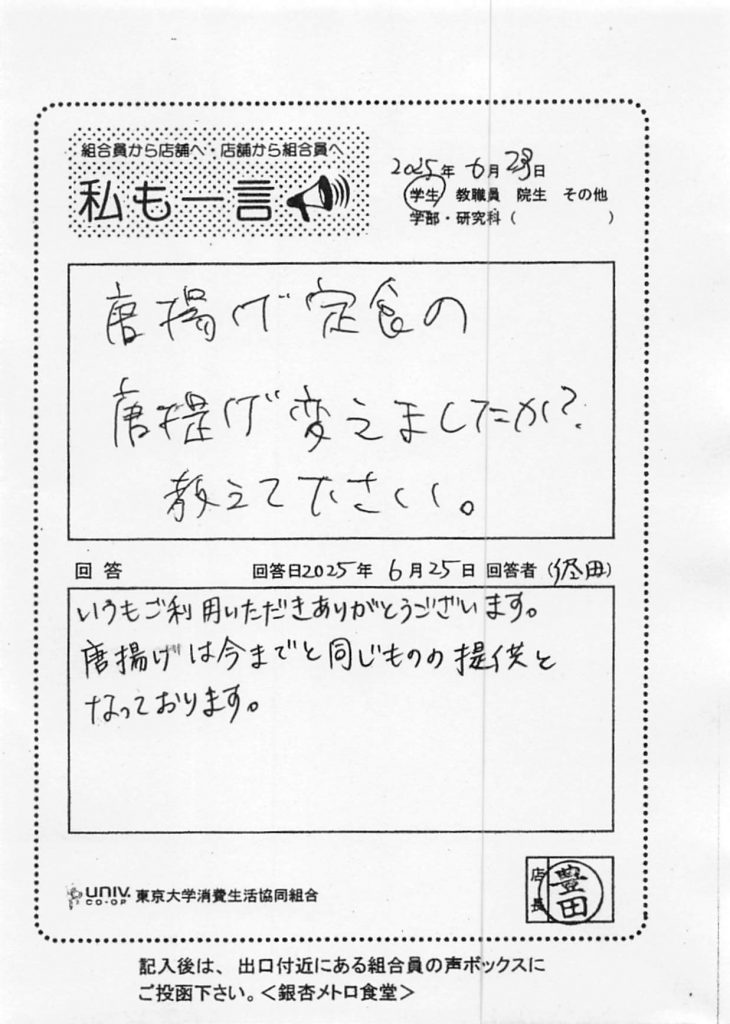 組合員から店舗へ・店舗から組合員へ
私も一言
2025年 6月 23日
学生 教職員 院生 その他
学部・研究科（ ）
唐揚げ定食の
唐揚げ変えましたか?
教えて下さい。
回答 回答日2025年 6月25日 回答者（田）
いつもご利用いただきありがとうございます。
唐揚げは今までと同じものの提供と
なっております。
店長 豊田
UNIV. CO-OP 東京大学消費生活協同組合
記入後は、出口付近にある組合員の声ボックスに
ご投函下さい。＜銀杏メトロ食堂＞